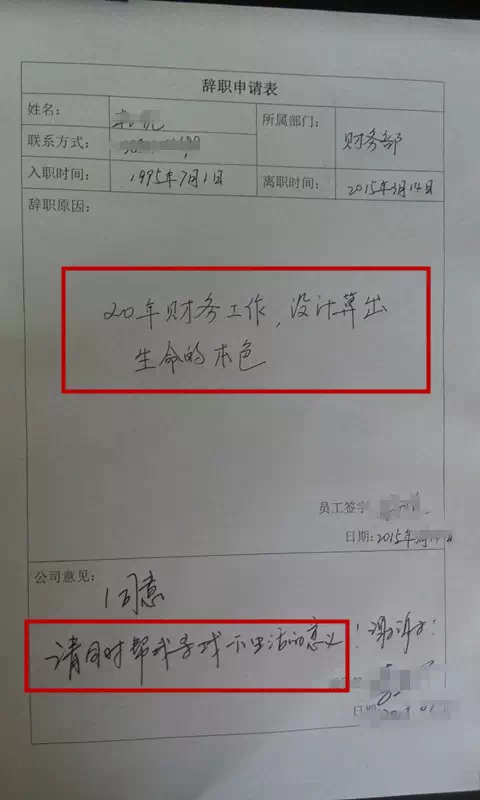 辞职申请表
姓名：
所属部门：
财务部
联系方式：
入职时间：
1995年7月1日
离职时间：
2015年3月14日
辞职原因：
20年财务工作，没计算出
生命的本色
员工签字
日期：2015年
公司意见：
同意
请同时帮我寻找一下生活的意义！谢谢！
日期：